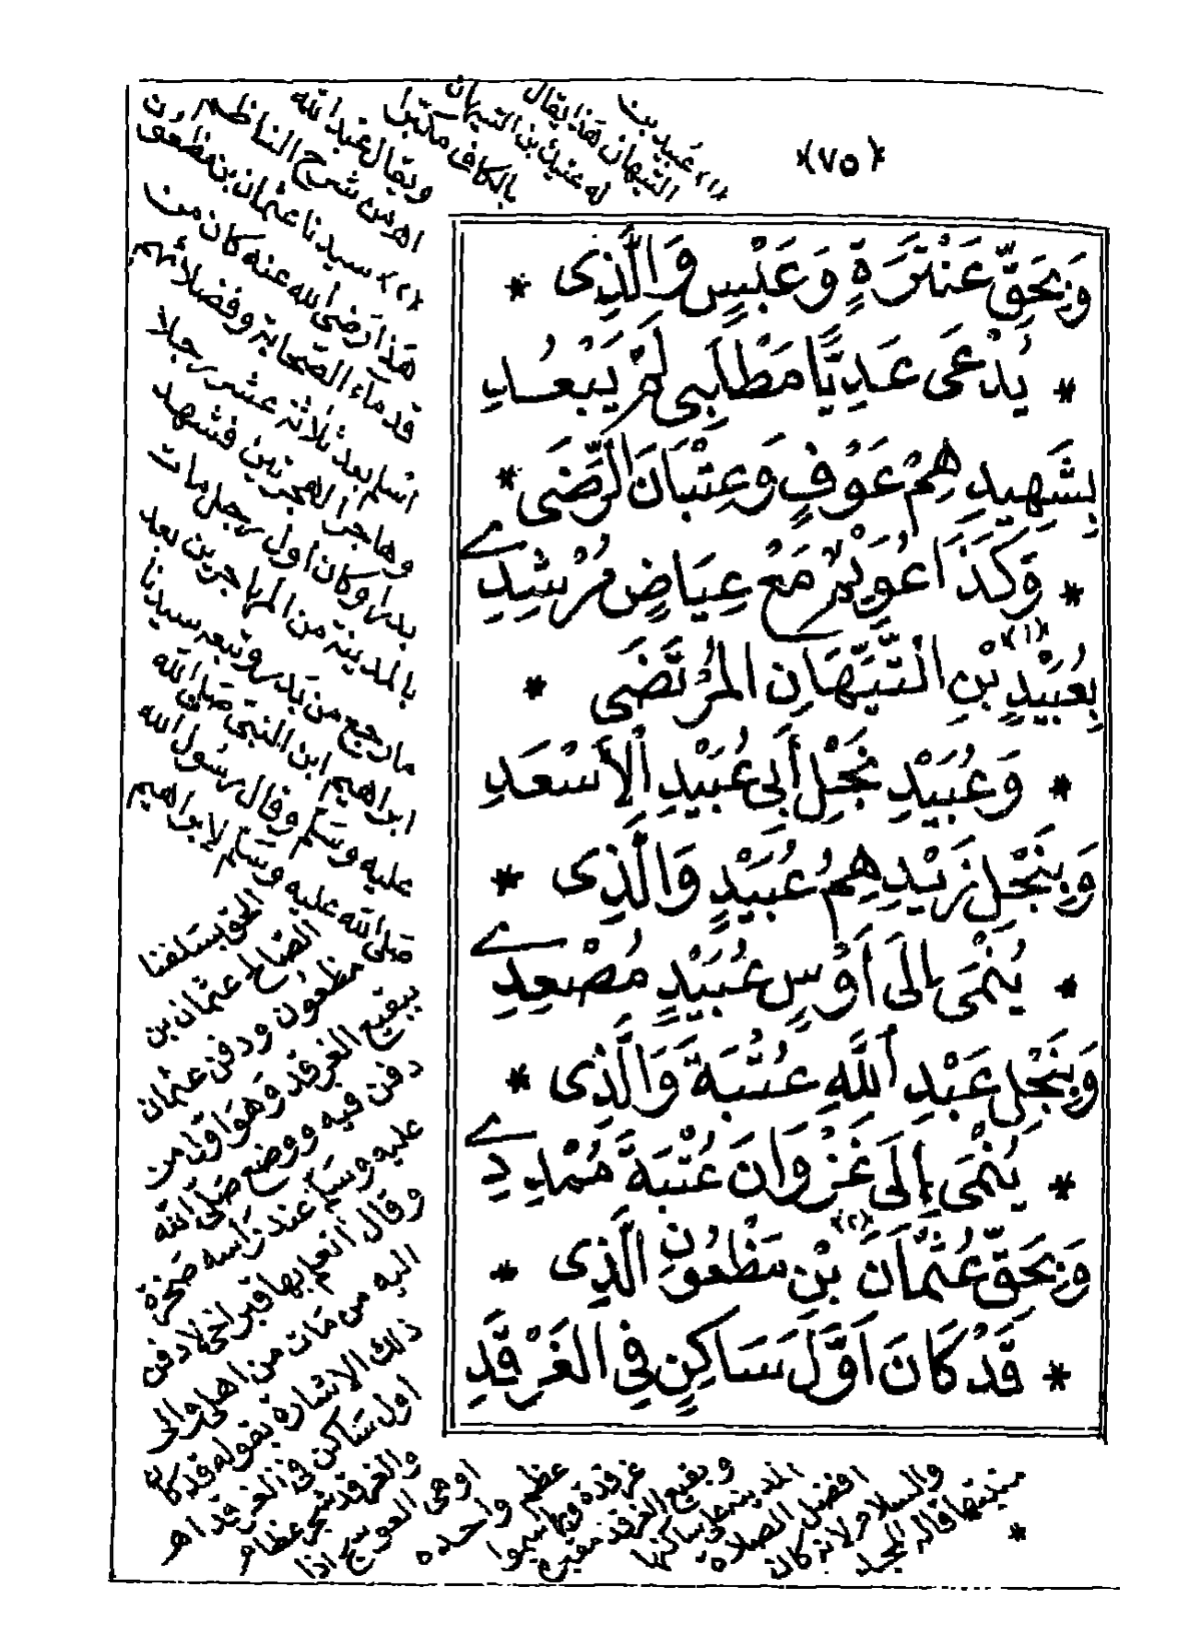 ﴿٧٥﴾
وَبِحَقِّ عَنْتَرَةٍ وَعَبْسٍ وَالَّذِى *
* يُدْعَى عَدِيًّا مَطْلَبِى لَمْ يَبْعُدِ
بِشَهِيدِهِمْ عَوْفٍ وَعِتْبَانَ الرِّضَى *
* وَكَذَا عُوَيْمُ مَعْ عِيَاضٍ مُرْشِدِي
بِعُبَيْدٍ ﴿١﴾ بْنِ التَّيِّهَانِ الْمُرْتَضَى *
* وَعُبَيْدِ نَجْلِ أَبِى عُبَيْدِ الْأَسْعَدِ
وَبِنَجْلِ زَيْدِهِمُ عُبَيْدٍ وَالَّذِى *
* يُنْمَى إِلَى أَوْسٍ عُبَيْدٍ مُصْعِدِي
وَبِنَجْلِ عَبْدِ اللَّهِ عُتْبَةَ وَالَّذِى *
* يُنْمَى إِلَى غَزْوَانَ عُتْبَةَ مُمْدِدِي
وَبِحَقِّ عُثْمَانَ ﴿٢﴾ بْنِ مَظْعُونِ الَّذِى *
* قَدْ كَانَ أَوَّلَ سَاكِنٍ فِى الْغَرْقَدِ
﴿١﴾ عُبيد بن
التيهان هذا يقال
له عتيك بن التيهان
بالكاف مكبرا
ويقال عبد الله
اهـ من شرح الناظم
﴿٢﴾ سيدنا عثمان بن مظعون
هذا رضي الله عنه كان من
قدماء الصحابة وفضلائهم
اسلم بعد ثلاثة عشر رجلا
وهاجر الهجرتين فشهد
بدرا وكان اول رجل مات
بالمدينة من المهاجرين بعد
ما رجع من بدر وتبعه سيدنا
ابراهيم ابن النبي صلى الله
عليه وسلم وقال رسول الله
صلى الله عليه وسلم لإبراهيم
الحق بسلفنا
الصالح عثمان بن
مظعون ودفن عثمان
ببقيع الغرقد وهو اول من
دفن فيه ووضع صلى الله
عليه وسلم عند رأسه صخرة
وقال أعلم بها قبر اخى لادفن
اليه من مات من اهلى والى
ذلك الاشارة بقوله قد كان
اول ساكن فى الغرقد اهـ
والغرقد شجر عظام
او هى العوسج اذا
عظم واحده
غرقدة وبها سموا
وبقيع الغرقد مقبرة
المدينة على ساكنها
افضل الصلاة
والسلام لانه كان
منبتها قاله المجد
*